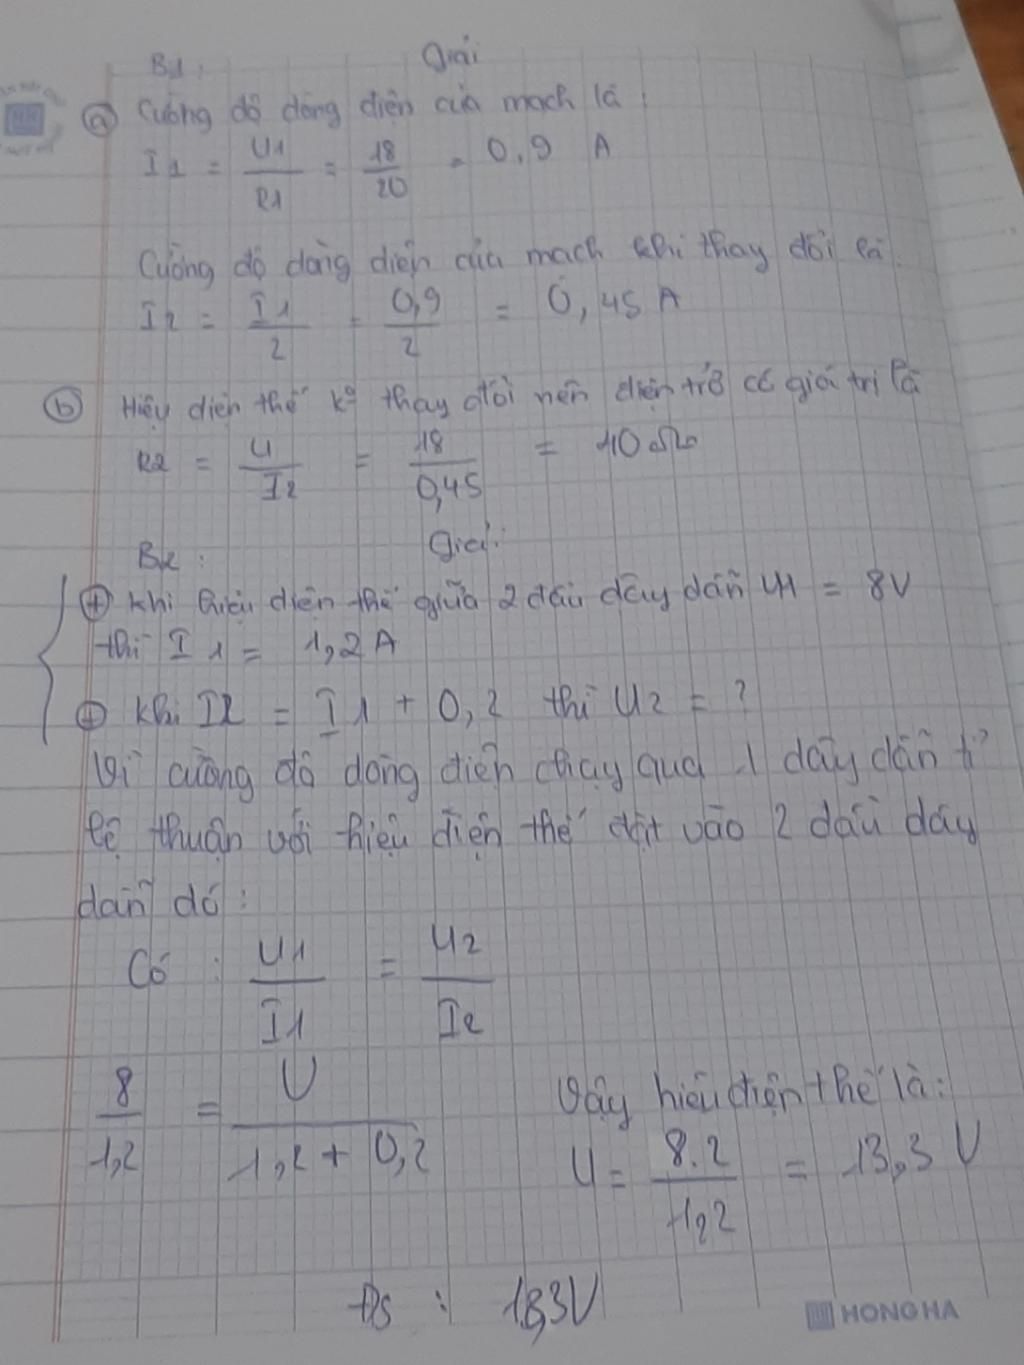 B1: Giải
a Cường độ dòng điện của mạch là:
I1 = U1/R1 = 18/20 = 0,9 A
Cường độ dòng điện của mạch khi thay đổi là:
I2 = I1/2 = 0,9/2 = 0,45 A
b Hiệu điện thế kº thay đổi nên điện trở có giá trị là
R2 = U/I2 = 18/0,45 = 40 Ω
B2: Giải:
+ Khi hiệu điện thế giữa 2 đầu dây dẫn U1 = 8V
thì I1 = 1,2A
+ Khi I2 = I1 + 0,2 thì U2 = ?
Vì cường độ dòng điện chạy qua 1 dây dẫn tỉ
lệ thuận với hiệu điện thế đặt vào 2 đầu dây
dẫn đó:
Có: U1/I1 = U2/I2
8/1,2 = U/1,2 + 0,2 Vậy hiệu điện thế là:
U = 8.2/1,2 = 13,3 V
Đs: 13,3V
HONG HA